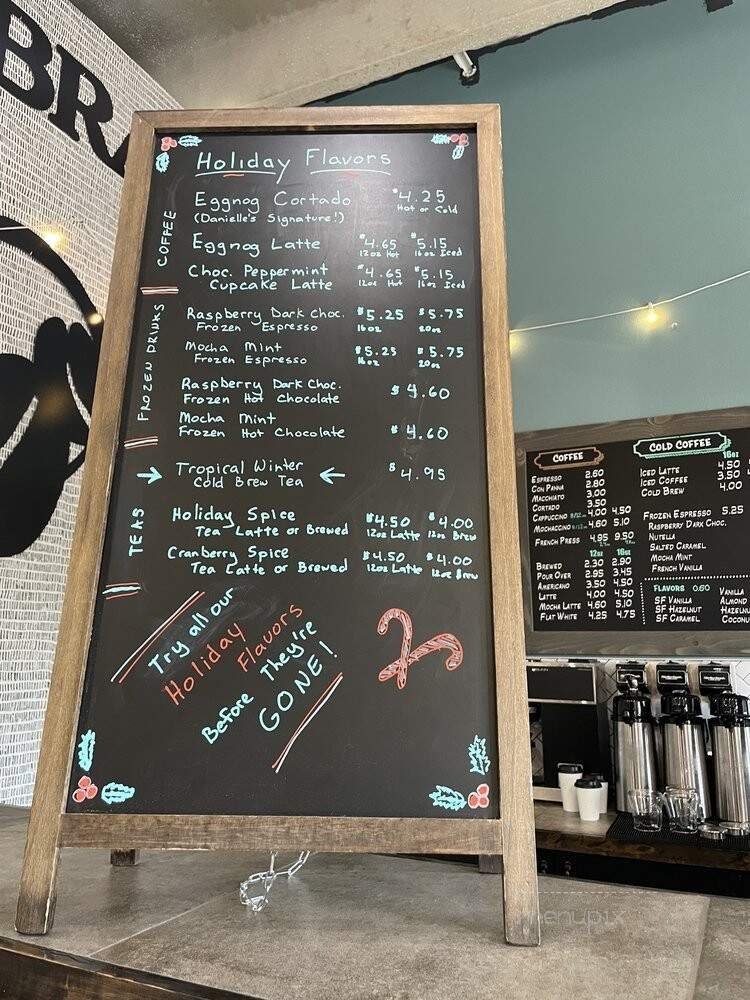 BRA
Holiday Flavors
COFFEE
Eggnog Cortado $4.25
(Danielle's Signature!) Hot or Cold
Eggnog Latte $4.65 $5.15
12oz Hot 16oz Iced
Choc. Peppermint $4.65 $5.15
Cupcake Latte 12oz Hot 16oz Iced
FROZEN DRINKS
Raspberry Dark Choc. $5.25 $5.75
Frozen Espresso 16oz 20oz
Mocha Mint $5.25 $5.75
Frozen Espresso 16oz 20oz
Raspberry Dark Choc.
Frozen Hot Chocolate $4.60
Mocha Mint
Frozen Hot Chocolate $4.60
TEAS
→ Tropical Winter ← $4.95
Cold Brew Tea
Holiday Spice $4.50 $4.00
Tea Latte or Brewed 12oz Latte 12oz Brew
Cranberry Spice $4.50 $4.00
Tea Latte or Brewed 12oz Latte 12oz Brew
Try all our
Holiday
Flavors
Before They're
GONE!
COFFEE
ESPRESSO 2.60
CON PANNA 2.80
MACCHIATO 3.00
CORTADO 3.50
CAPPUCCINO 4.00 4.50
MOCHACCINO 4.60 5.10
FRENCH PRESS 4.95 9.50
12oz 16oz
BREWED 2.30 2.90
POUR OVER 2.95 3.45
AMERICANO 3.50 4.50
LATTE 4.00 4.50
MOCHA LATTE 4.60 5.10
FLAT WHITE 4.25 4.75
COLD COFFEE
16oz
ICED LATTE 4.50
ICED COFFEE 3.50
COLD BREW 4.00
FROZEN ESPRESSO 5.25
RASPBERRY DARK CHOC.
NUTELLA
SALTED CARAMEL
MOCHA MINT
FRENCH VANILLA
FLAVORS 0.60 VANILLA
SF VANILLA ALMOND
SF HAZELNUT HAZELNU
SF CARAMEL COCONU
menupix